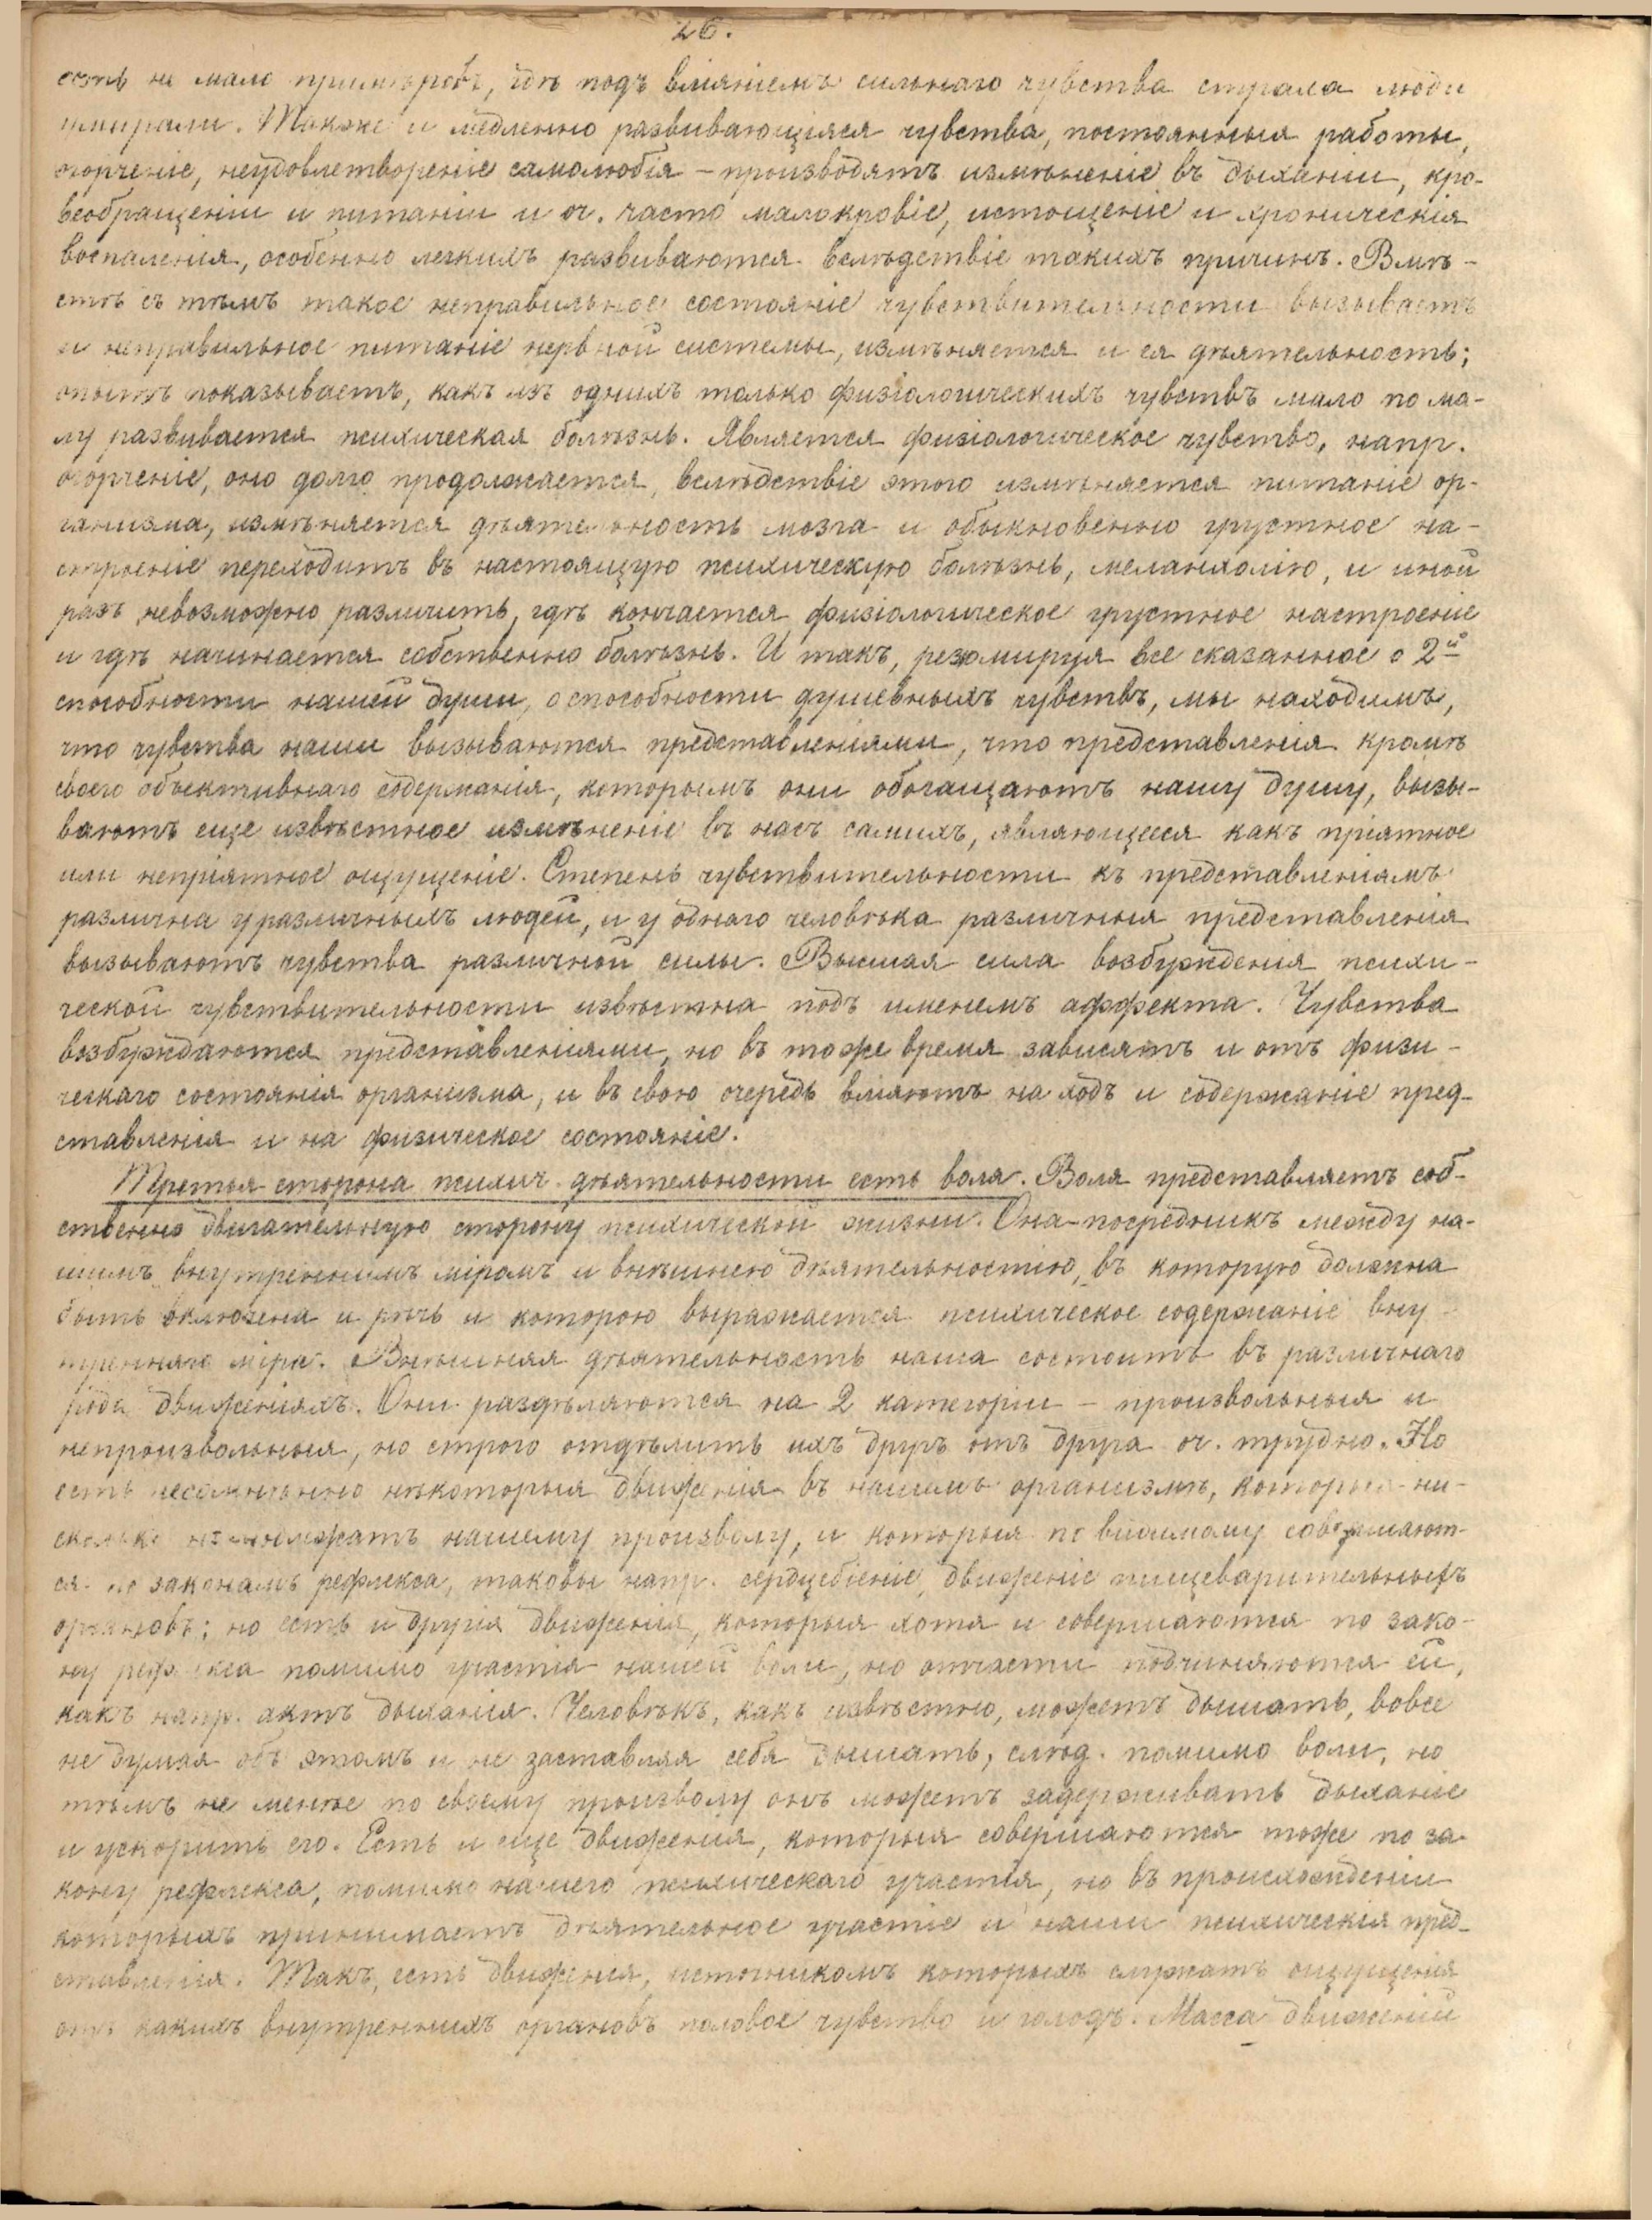 26.
есть не мало примѣровъ, гдѣ подъ вліяніемъ сильнаго чувства страха люди
умирали. Также и медленно развивающіяся чувства, постоянныя работы,
огорченіе, неудовлетвореніе самолюбія – производятъ измѣненіе въ дыханіи, кро-
веобращеніи и питаніи и оч. часто малокровіе, истощеніе и хроническія
воспаленія, особенно легкихъ развиваются вслѣдствіе такихъ причинъ. Вмѣ-
стѣ съ тѣмъ такое неправильное состояніе чувствительности вызываетъ
и неправильное питаніе нервной системы, измѣняется и ея дѣятельность;
опытъ показываетъ, какъ изъ однихъ только физіологическихъ чувствъ мало по ма-
лу развивается психическая болѣзнь. Является физіологическое чувство, напр.
огорченіе, оно долго продолжается, вслѣдствіе этого измѣняется питаніе ор-
ганизма, измѣняется дѣятельность мозга и обыкновенно грустное на-
строеніе переходитъ въ настоящую психическую болѣзнь, меланхолію, и иной
разъ невозможно различить, гдѣ кончается физіологическое грустное настроеніе
и гдѣ начинается собственно болѣзнь. И такъ, резюмируя все сказанное о 2й
способности нашей души, о способности душевныхъ чувствъ, мы находимъ,
что чувства наши вызываются представленіями, что представленія кромѣ
своего объективнаго содержанія, которымъ они обогащаютъ нашу душу, вызы-
ваютъ еще извѣстное измѣненіе въ насъ самихъ, являющееся какъ пріятное
или непріятное ощущеніе. Степень чувствительности къ представленіямъ
различна у различныхъ людей, и у одного человѣка различныя представленія
вызываютъ чувства различной силы. Высшая сила возбужденія психи-
ческой чувствительности извѣстна подъ именемъ аффекта. Чувства
возбуждаются представленіями, но въ тоже время зависятъ и отъ физи-
ческаго состоянія организма, и въ свою очередь вліяютъ на ходъ и содержаніе пред-
ставленія и на физическое состояніе.
Третья сторона психич. дѣятельности есть воля. Воля представляетъ соб-
ственно двигательную сторону психической жизни. Она-посредникъ между на-
шимъ внутреннимъ міромъ и внѣшнею дѣятельностію, въ которую должна
быть включена и рѣчь и которою выражается психическое содержаніе вну-
тренняго міра. Внѣшняя дѣятельность наша состоитъ въ различнаго
рода движеніяхъ. Они раздѣляются на 2 категоріи – произвольныя и
непроизвольныя, но строго отдѣлить ихъ другъ отъ друга оч. трудно. Но
есть несомнѣнно нѣкоторыя движенія въ нашемъ организмѣ, которыя ни-
сколько не подлежатъ нашему произволу, и которыя по видимому совершают-
ся по законамъ рефлекса, таковы напр. сердцебіеніе, движеніе пищеварительныхъ
органовъ; но есть и другія движенія, которыя хотя и совершаются по зако-
ну рефлекса помимо участія нашей воли, но отчасти подчиняются ей,
какъ напр. актъ дыханія. Человѣкъ, какъ извѣстно, можетъ дышать, вовсе
не думая объ этомъ и не заставляя себя дышать, слѣд. помимо воли, но
тѣмъ не менѣе по своему произволу онъ можетъ задерживать дыханіе
и ускорить его. Есть и еще движенія, которыя совершаются тоже по за-
кону рефлекса, помимо нашего психическаго участія, но въ происхожденіи
которыхъ принимаетъ дѣятельное участіе и наши психическія пред-
ставленія. Такъ, есть движенія, источникомъ которыхъ служатъ ощущенія
отъ какихъ внутреннихъ органовъ половое чувство и голодъ. Масса движеній